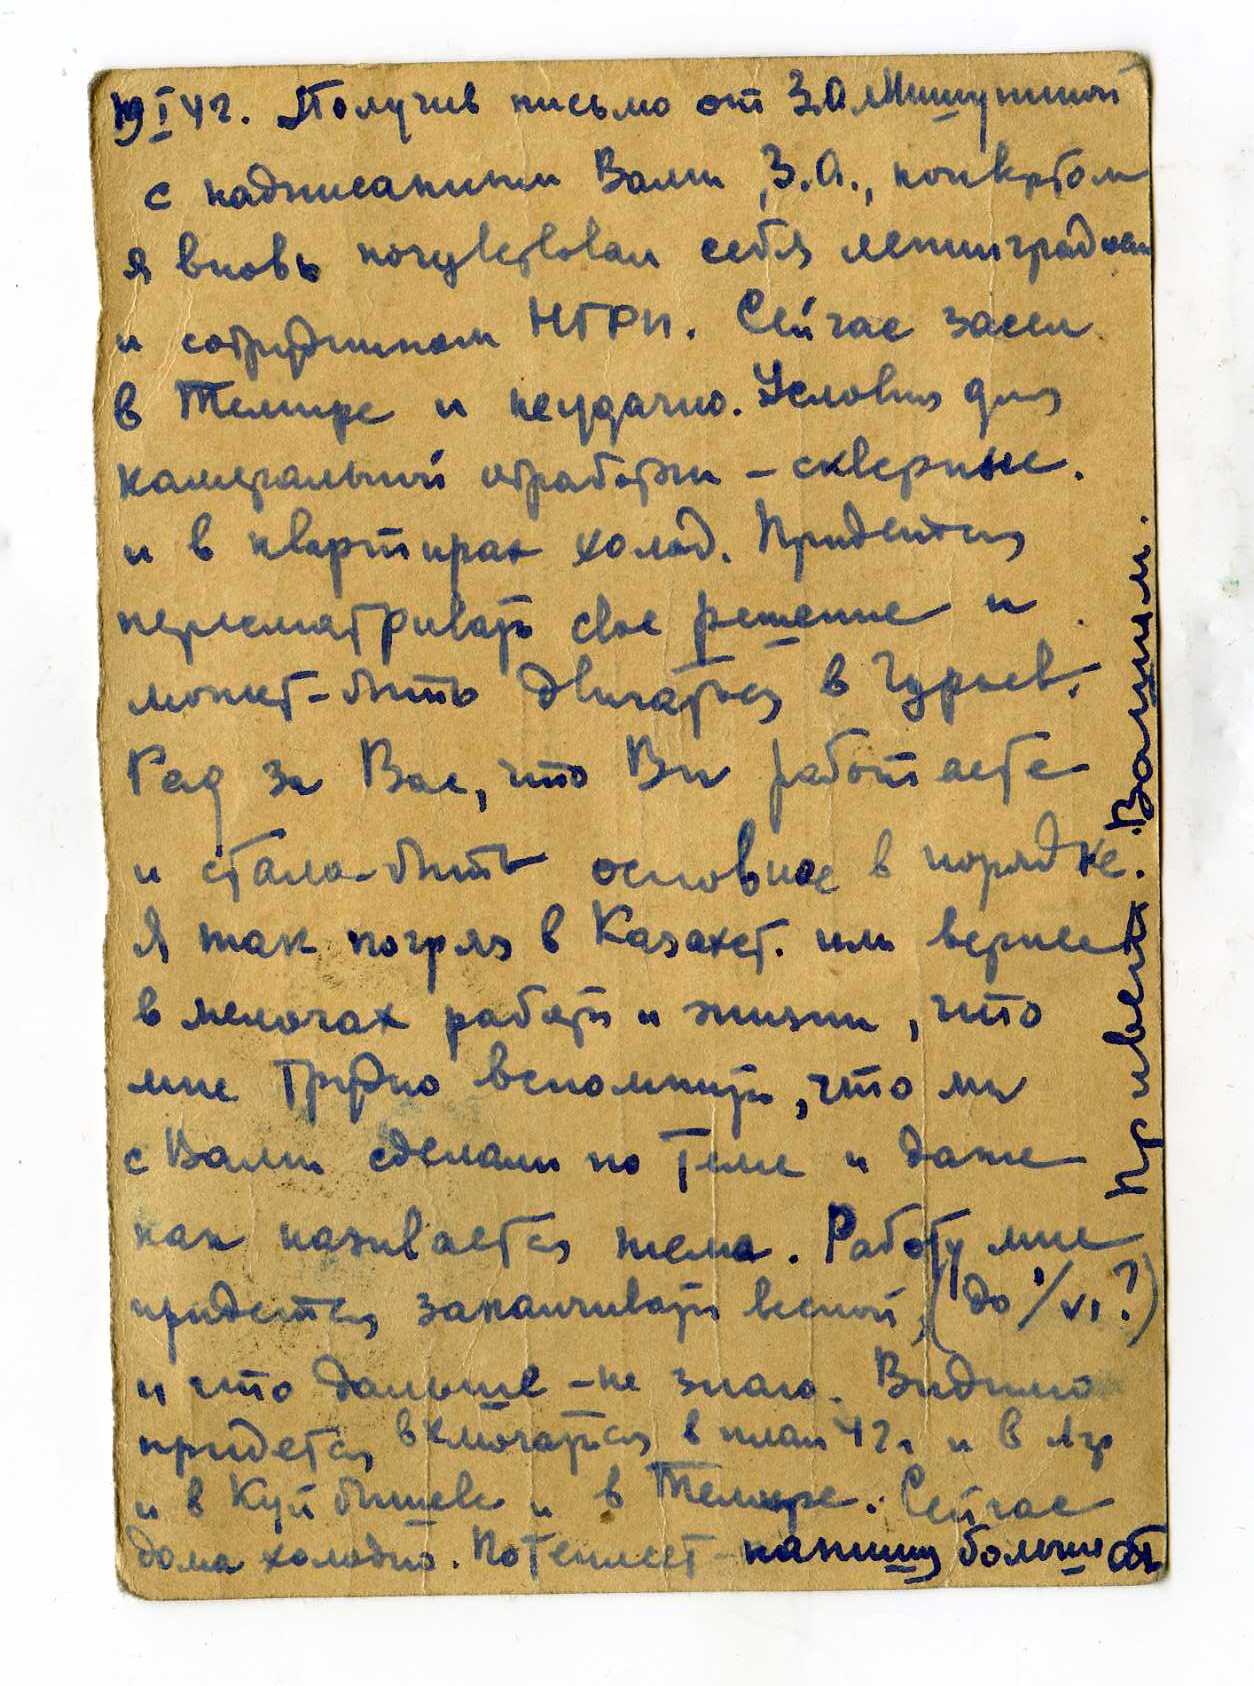 19 I 42. Получив письмо от З.А. Мишуниной
с надписанным Вами, З.А., конвертом
я вновь почувствовал себя ленинградцем
и сотрудником НГРИ. Сейчас засел
в Темире и неудачно. Условия для
камеральной обработки – скверные.
и в квартирах холод. Придется
пересматривать свое решение и
может-быть двигаться в Гурьев.
Рад за Вас, что Вы работаете
и стало-быть основное в порядке.
Я так погряз в Казахст. или вернее
в мелочах работы и жизни, что
мне трудно вспомнить, что мы
с Вами сделали по теме и даже
как называется тема. Работу мне
придется заканчивать весной, (до 1/VI?)
и что дальше – не знаю. Видимо
придется включаться в план 42 г. и в
и в Куйбышеве и в Темире. Сейчас
дома холодно. Потеплеет – напишу больше
Привет Вашим.